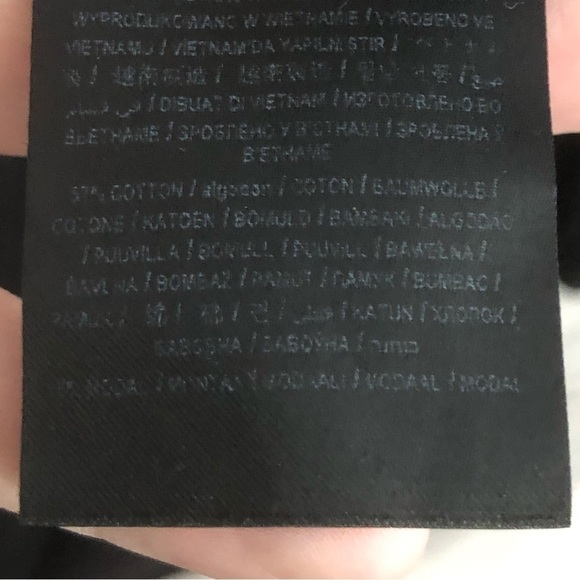 WYPRODUKOWANO W WIETNAMIE / VYROBENO VE
VIETNAMU / VIETNAM'DA YAPILMIŞTIR /
/ 越南製造 / 越南制造 /
/ DIBUAT DI VIETNAM / ИЗГОТОВЛЕНО ВО
ВЬЕТНАМЕ / ЗРОБЛЕНО У В'ЄТНАМІ / ЗРОБЛЕНА
В'ЕТНАМЕ
COTTON / algodon / COTON / BAUMWOLLE /
COTONE / KATOEN / BOMULD / ΒΑΜΒΑΚΙ / ALGODÃO
/ PUUVILLA / BOMULL / PUUVILL / BAWEŁNA /
BAVLNA / BOMBAŽ / PAMUT / ПАМУК / BUMBAC /
PAMUK / 棉 / 棉 / 면 / قطن / KATUN / ХЛОПОК /
БАВОВНА / БАВОЎНА / כותנה
MODAL / ΜΟΝΤΑΛ / MODAALI / MODAAL / MODAL